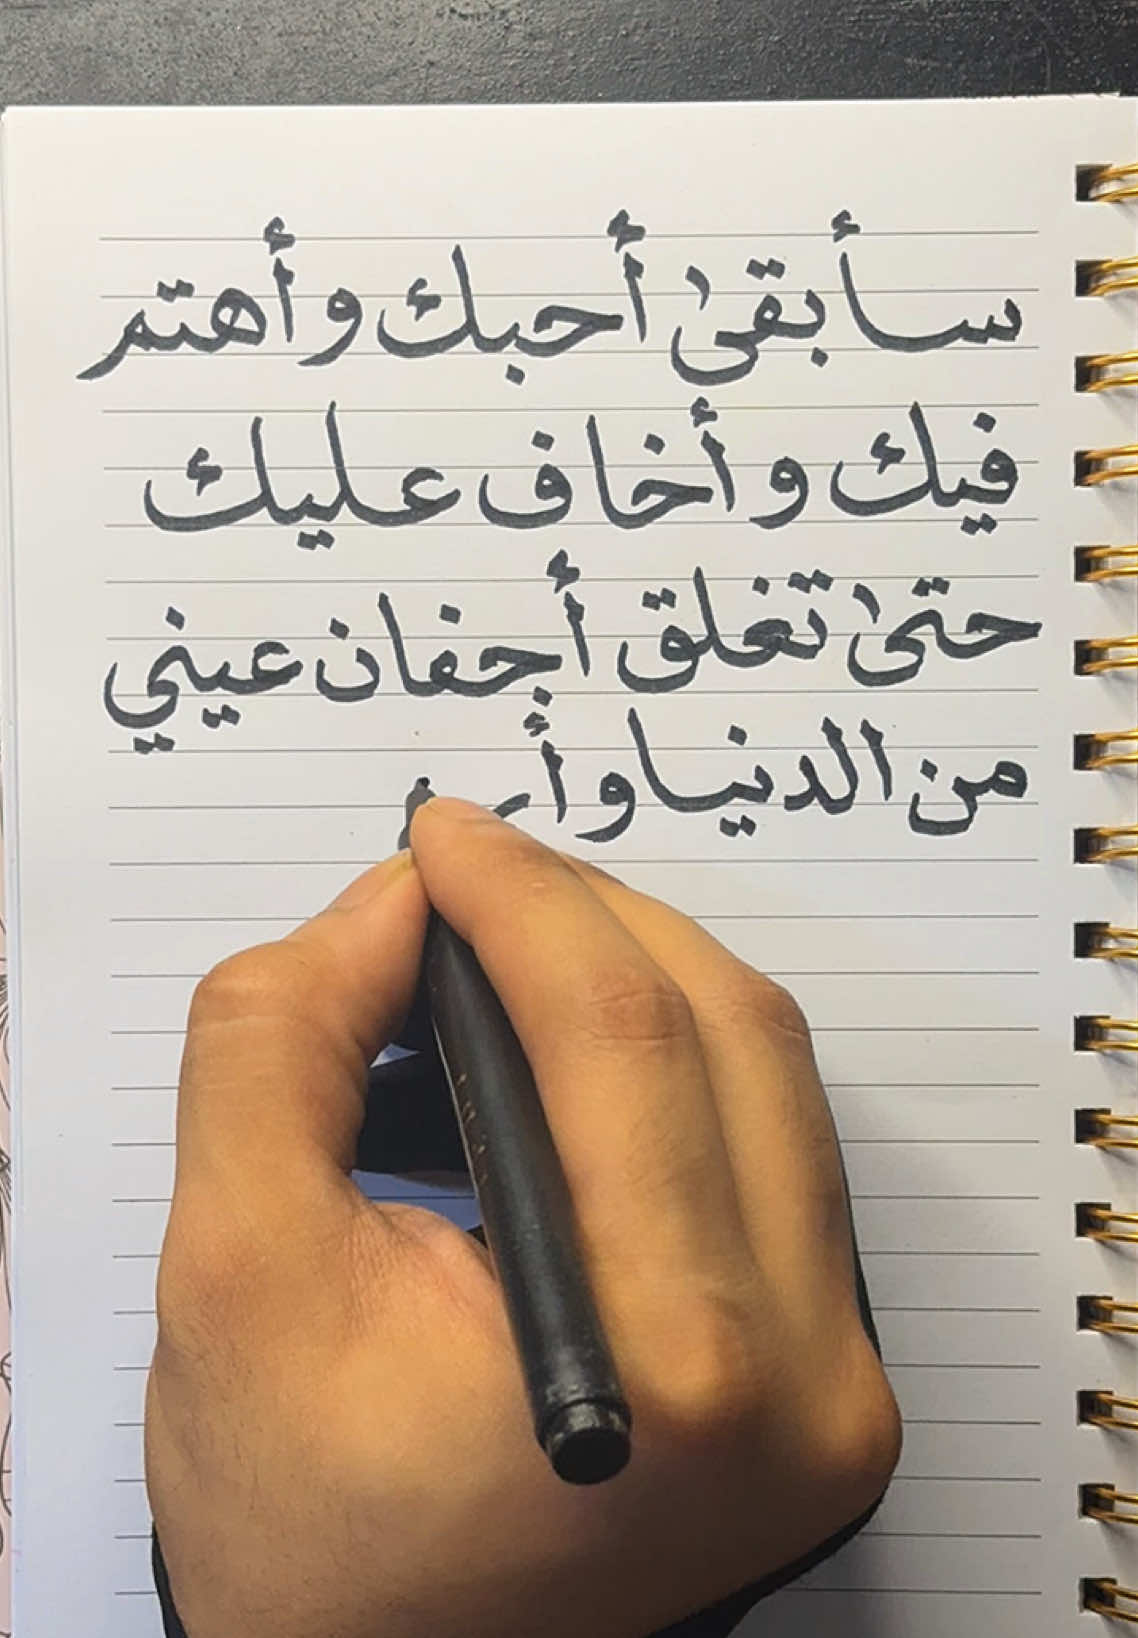 سأبقىٰ أحبك وأهتم
فيك وأخاف عليك
حتىٰ تغلق أجفان عيني
من الدنيا و